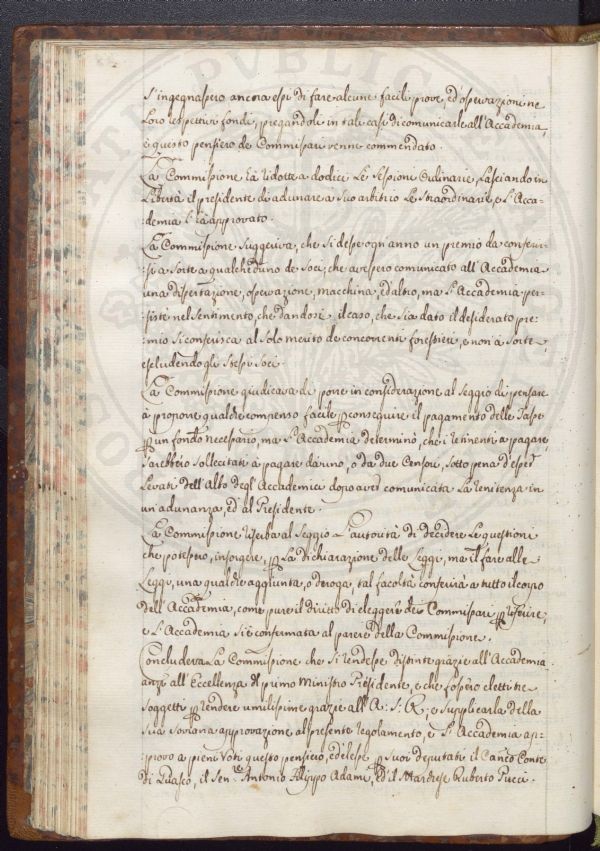 S'ingegnassero ancora essi di fare alcune facili prove, ed osservazioni ne
Loro respettivi fondi, pregandoli in tali casi di comunicarle all'Accademia,
e questo pensiero de Commissari venne commendato.
La Commissione hà ridotte a dodici Le Sessioni Ordinarie, Lasciando in
Libertà il presidente di adunare a Suo arbitrio Le Straordinarie, e L'Acca-
demia L'hà approvato.
La Commissione Suggeriva, che Si desse ogni anno un premio da conferir-
:si a Sorte a qualcheduno de Soci, che avessero comunicato all'Accademia
una dissertazione, osservazione, macchina, ed altro, ma L'Accademia per-
siste nel Sentimento, che dandosi il caso, che Sia dato il desiderato pre-
mio Si conferisca al Solo merito de concorrenti forestieri, e non a Sorte,
escludendo gli Stessi Soci.
La Commissione giudicava di porre in considerazione al Seggio di pensare
à proporre qualche compenso facile p conseguire il pagamento delle Tasse
p un fondo necessario, ma L'Accademia determinò, che i renitenti a pagare,
Sarebbero Sollecitati à pagare da uno, o da due Censori, Sotto pena d'esser
Levati dell'Albo degl'Accademici dopo aver comunicata La renitenza in
un'adunanza, ed al Presidente.
La Commissione riserba al Seggio L'autorità di decidere Le questioni
che potessero, insorgere, p La dichiarazione delle Leggi, ma il fare alle
Leggi, una qualche aggiunta, o deroga, tal facoltà conferirà a tutto il corpo
dell'Accademia, come pure il diritto di eleggere de Commissari p riferire,
e L'Accademia Si è confermata al parere della Commissione.
Concludeva La Commissione che Si rendesse distinte grazie all'Accademia
anzi all'Eccellenza del primo Ministro Presidente, e che fossero eletti tre
Soggetti p rendere umilissime grazie all'A: S: R:, e Supplicarla della
Sua Sovrana approvazione al presente regolamento, e L'Accademia ap-
:provò a pieni Voti questo pensiero, ed elesse p Suoi deputati il Canco Conte
Di Guasco, il Sen:re Antonio Filippo Adami, ed il Marchese Ruberto Pucci.